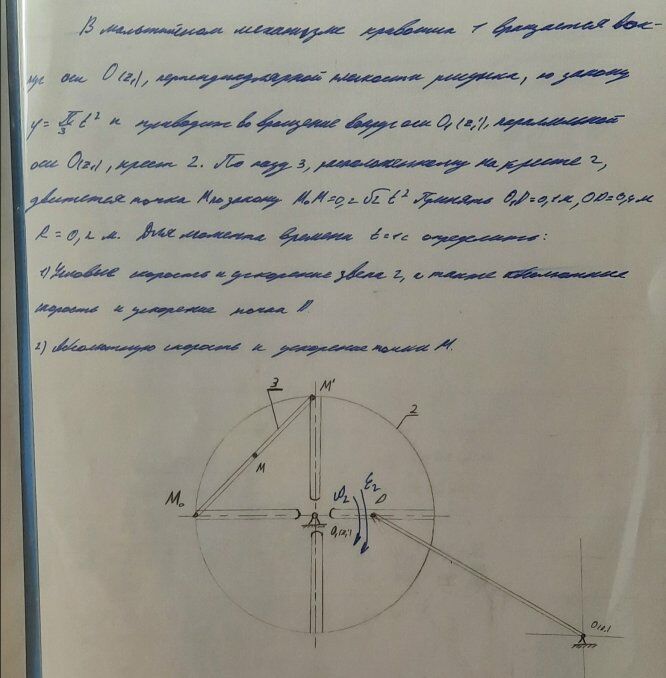 В мальтийском механизме кривошип 1 вращается вок-
руг оси O(z), перпендикулярной плоскости рисунка, по закону
φ = π/3 t² и приводит во вращение вокруг оси O₁(z₁), параллельной
оси O(z), крест 2. По пазу 3, расположенному на кресте 2,
движется точка M по закону M₀M = 0,2√2 t² Принять O₁D = 0,1 м, OD = 0,4 м
R = 0,2 м. Для момента времени t = 1 с определить:
1) Угловые скорость и ускорение звена 2, а также абсолютные
скорость и ускорение точки D.
2) Абсолютную скорость и ускорение точки M.
3
M'
2
M
M₀
ω₂
ε₂
D
O₁(z₁)
O(z)